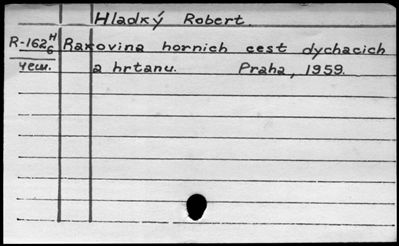 Hladký Robert.
R-162 H/6 Rakovina hornich cest dychacich
чеш. a hrtanu. Praha, 1959.